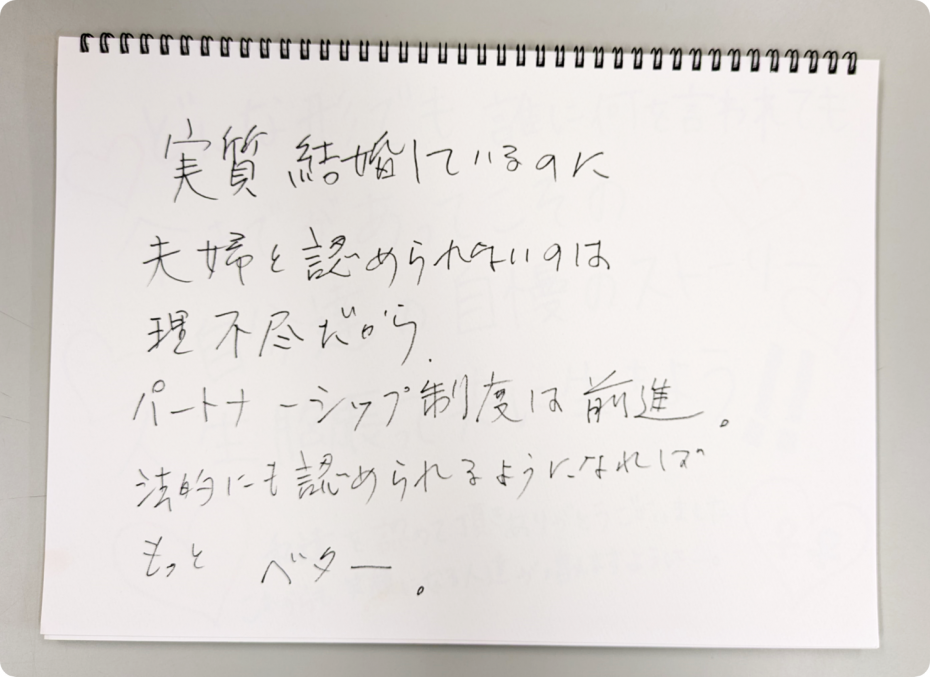 実質結婚しているのに
夫婦と認められないのは
理不尽だから.
パートナーシップ制度は前進。
法的にも認められるようになれば
もっと ベター。